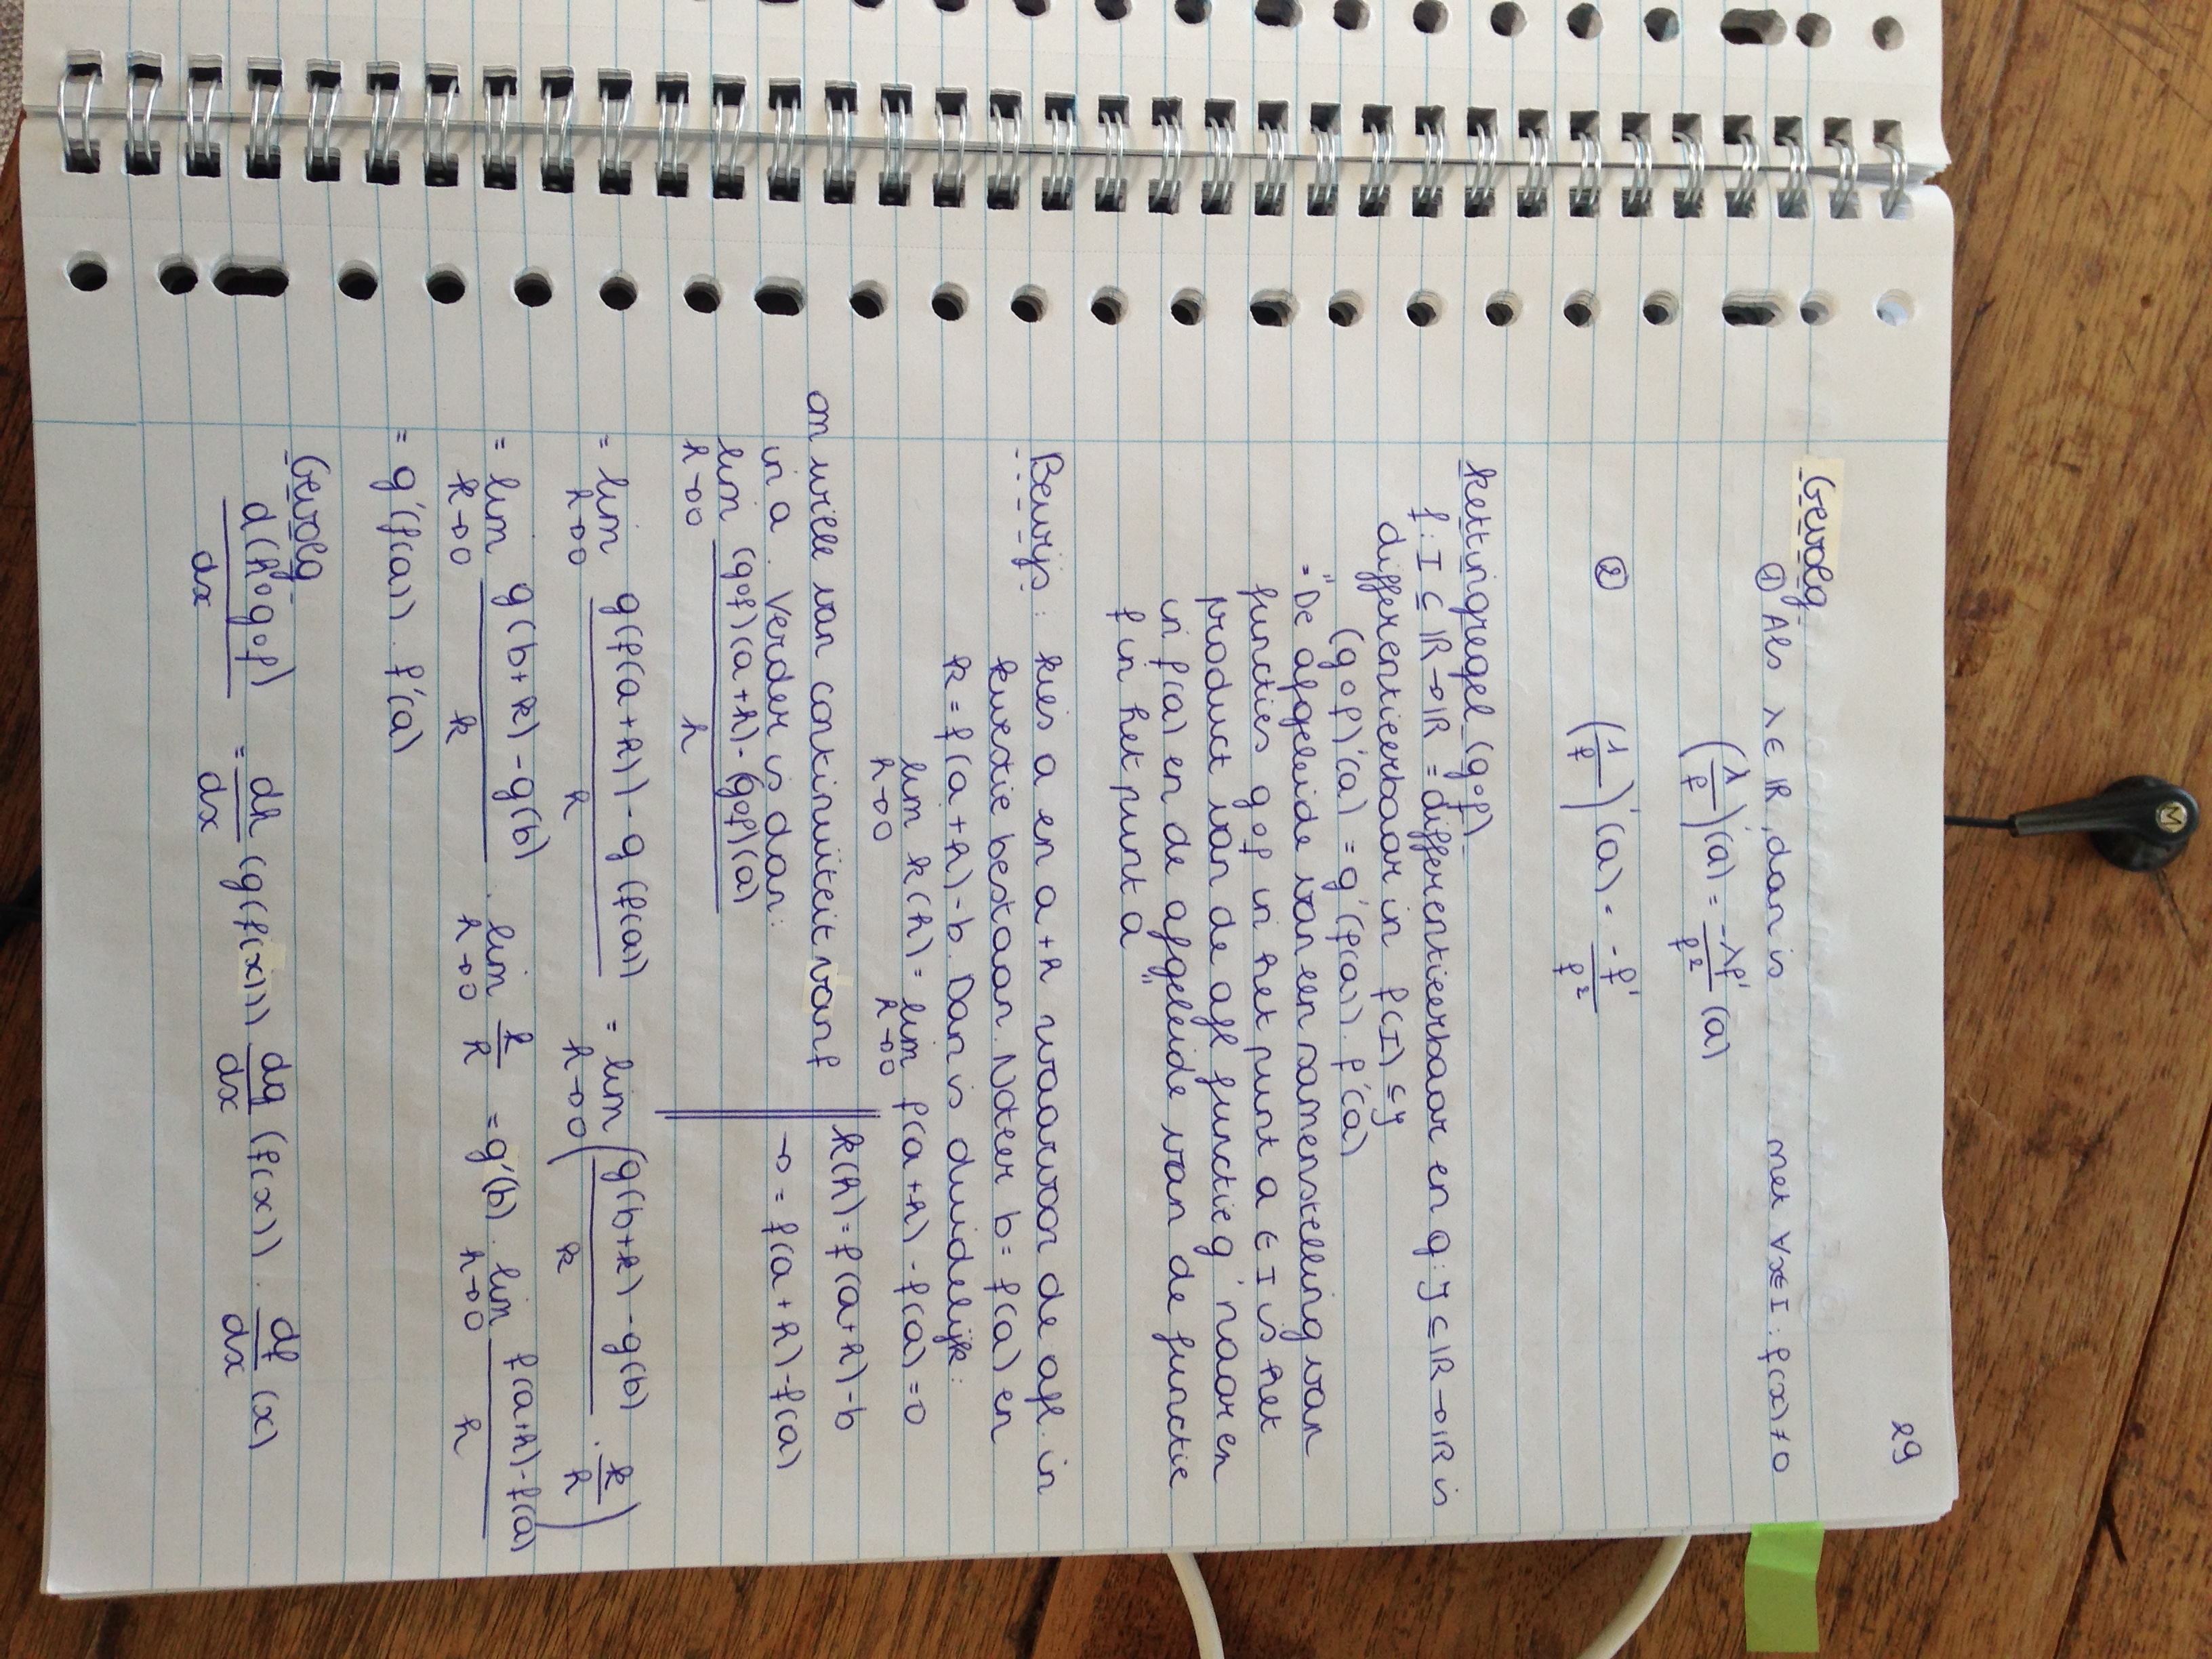 M
29
Gevolg
① Als λ ∈ ℝ, dan is met ∀x∈I : f(x) ≠ 0
(λ/f)'(a) = -λf'/f² (a)
② (1/f)'(a) = -f'/f²
Kettingregel (g∘f)
f: I ⊆ ℝ → ℝ = differentieerbaar en g: J ⊆ ℝ → ℝ is
differentieerbaar in f(I) ⊆ J
(g∘f)'(a) = g'(f(a)). f'(a)
= "De afgeleide van een samenstelling van
functies g∘f in het punt a ∈ I is het
product van de afl functie g' naar en
in f(a) en de afgeleide van de functie
f in het punt a"
Bewijs: Kies a en a+h waarvoor de afl. in
kwestie bestaan. Noteer b = f(a) en
k = f(a+h) - b. Dan is duidelijk:
lim h→0 k(h) = lim h→0 f(a+h) - f(a) = 0
om wille van continuïteit van f
in a. Verder is dan:
k(h) = f(a+h) - b
→ = f(a+h) - f(a)
lim h→0 (g∘f)(a+h) - (g∘f)(a) / h
= lim h→0 g(f(a+h)) - g(f(a)) / h = lim h→0 (g(b+k) - g(b) / k . k/h)
= lim k→0 g(b+k) - g(b) / k . lim h→0 k/h = g'(b) . lim h→0 f(a+h) - f(a) / h
= g'(f(a)) . f'(a)
Gevolg
d(h∘g∘f)/dx = dh/dx (g(f(x))) dg/dx (f(x)) . df/dx (x)